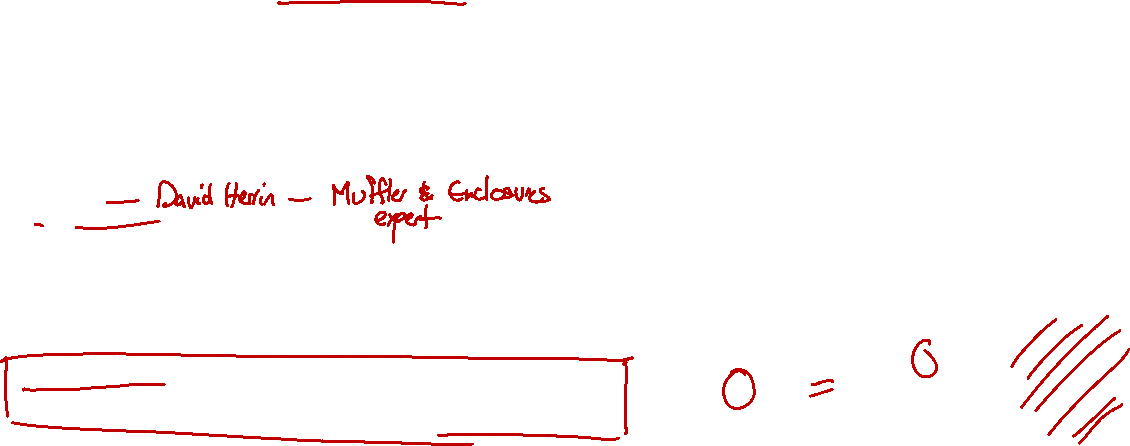 — David Herrin — Muffler & Enclosures
expert
0 = 0